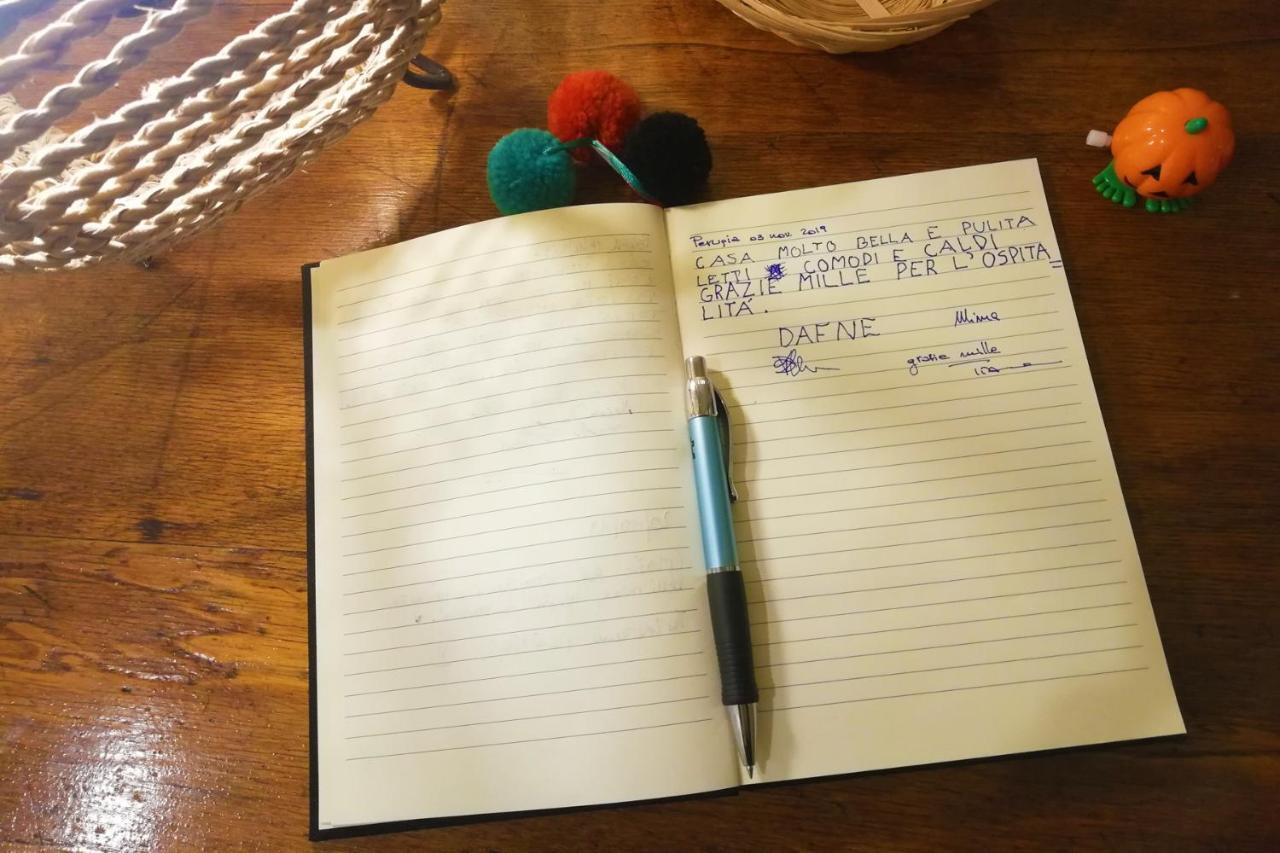 Perugia 03 nov 2019
CASA MOLTO BELLA E PULITA
LETTI COMODI E CALDI
GRAZIE MILLE PER L'OSPITA=
LITÁ.
DAFNE
grazie mille